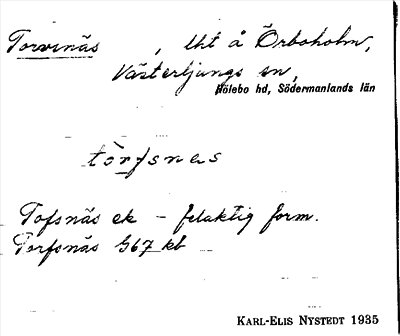 Torvinäs, lht å Örboholm,
Västerljungs sn,
Hölebo hd, Södermanlands län
tòrfsnes
Tofsnäs ek – felaktig form.
Torfsnäs G67 kb
KARL-ELIS NYSTEDT 1935